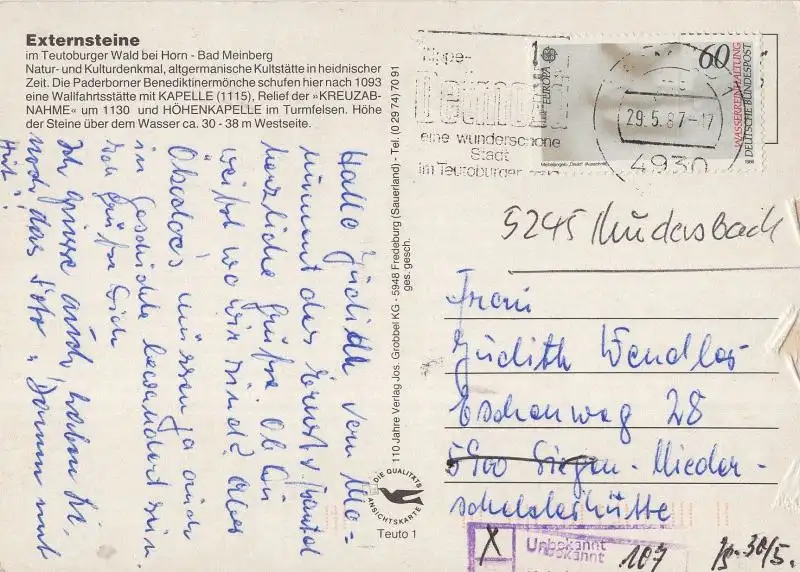 Externsteine
im Teutoburger Wald bei Horn - Bad Meinberg
Natur- und Kulturdenkmal, altgermanische Kultstätte in heidnischer
Zeit. Die Paderborner Benediktinermönche schufen hier nach 1093
eine Wallfahrtsstätte mit KAPELLE (1115), Relief der »KREUZAB-
NAHME« um 1130 und HÖHENKAPELLE im Turmfelsen. Höhe
der Steine über dem Wasser ca. 30 - 38 m Westseite.
Detmold
eine wunderschöne
Stadt
im Teutoburger
EUROPA
60
WASSERREINHALTUNG
DEUTSCHE BUNDESPOST
29.5.87-17
4930
5245 Mudersbach
Frau
Judith
Eschenweg 28
5900 Siegen - Nieder-
schelderhütte
X
Unbekannt
107
30/5.
Hallo Judith
nimmt das
herzliche Grüße. Ob Du
weißt wo wir sind? Aber
müssen ja auch
in Geschichte bewandert sein.
grüße Dich
Ich grüße auch, haben Sie
noch das
110 Jahre Verlag Jos. Grobbel KG - 5948 Fredeburg (Sauerland) - Tel. (0 29 74) 70 91
ges. gesch.
DIE QUALITÄTS
ANSICHTSKARTE
Teuto 1